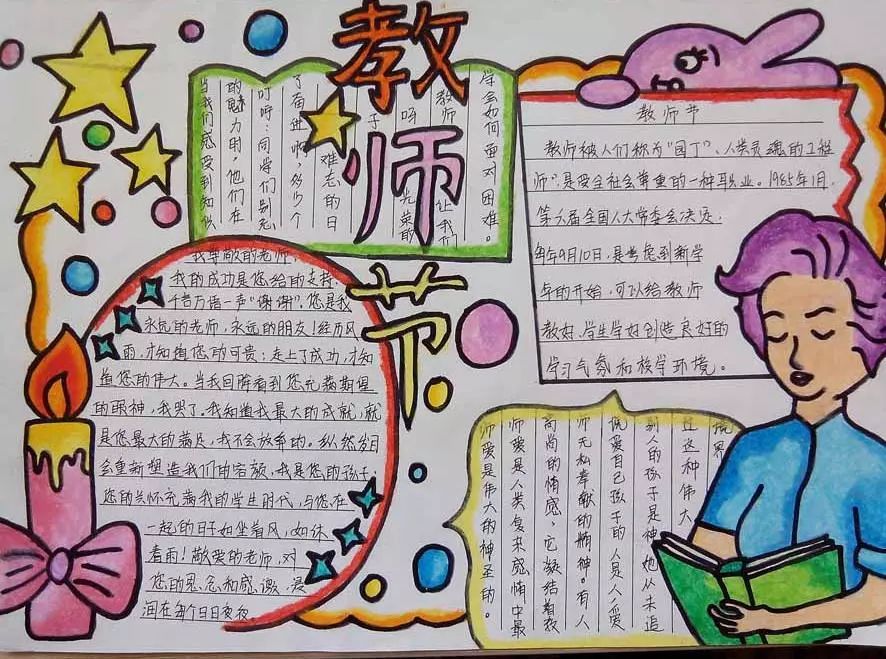 教师节
教师节
教师被人们称为“园丁”、人类灵魂的工程
师”,是受全社会尊重的一种职业。1985年1月,
第六届全国人大常委会决定,
每年9月10日,是考虑到新学
年的开始,可以给教师
教好、学生学好创造良好的
学习气氛和校学环境。
学会如何面对困难。
教师
让我们
呀
光荣的
子
难忘的日
了奋进啊,多少个
叮咛:同学们别忘
的魅力时,他们在
当我们感受到知识
我尊敬的老师
我的成功是您给的支持,
千言万语一声“谢谢”。您是我
永远的老师,永远的朋友!经历风
雨,才知道您的可贵;走上了成功,才知
道您的伟大。当我回眸看到您充满期望
的眼神,我哭了。我知道我最大的成就,就
是您最大的满足,我不会放弃的。纵然岁月
会重新塑造我们的容颜,我是您的孩子;
您的关怀充满我的学生时代,与您在
一起的日子如坐春风,如沐
春雨!敬爱的老师,对
您的思念和感激,浸
润在每个日日夜夜
界
过这种伟大
别人的孩子是神,她从未追
仅爱自己孩子的人是人,爱
师无私奉献的精神。有人
高尚的情感,它凝结着教
师爱是人类复杂感情中最
师爱是伟大的神圣的。